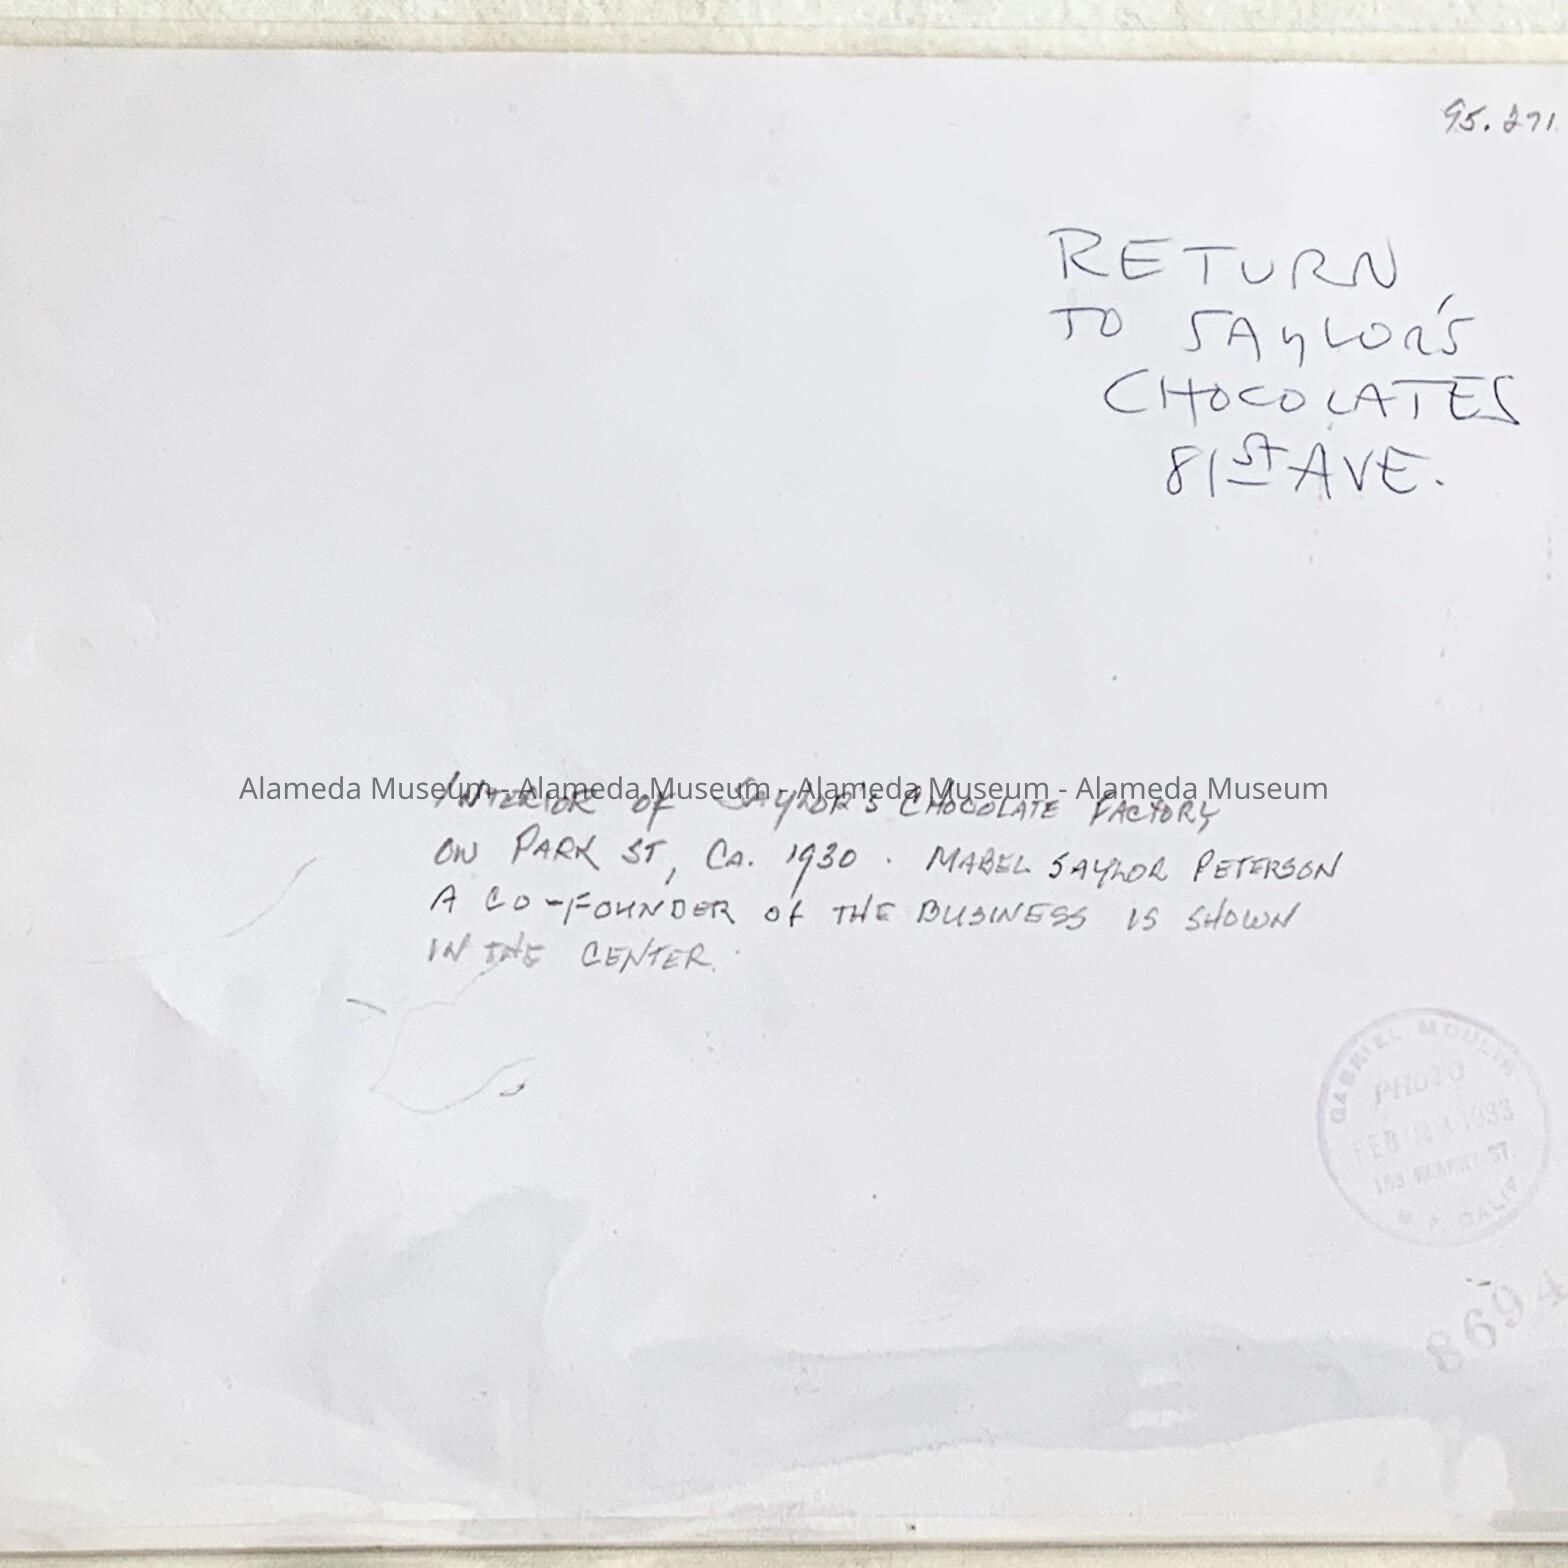 95.271
RETURN
TO SAYLOR'S
CHOCOLATES
81ST AVE.
Alameda Museum - Alameda Museum - Alameda Museum - Alameda Museum
INTERIOR OF SAYLOR'S CHOCOLATE FACTORY
ON PARK ST, CA. 1930. MABEL SAYLOR PETERSON
A CO-FOUNDER OF THE BUSINESS IS SHOWN
IN THE CENTER.
GABRIEL MOULIN
PHOTO
FEB 1933
KEARNY ST.
S. F. CALIF.
8694